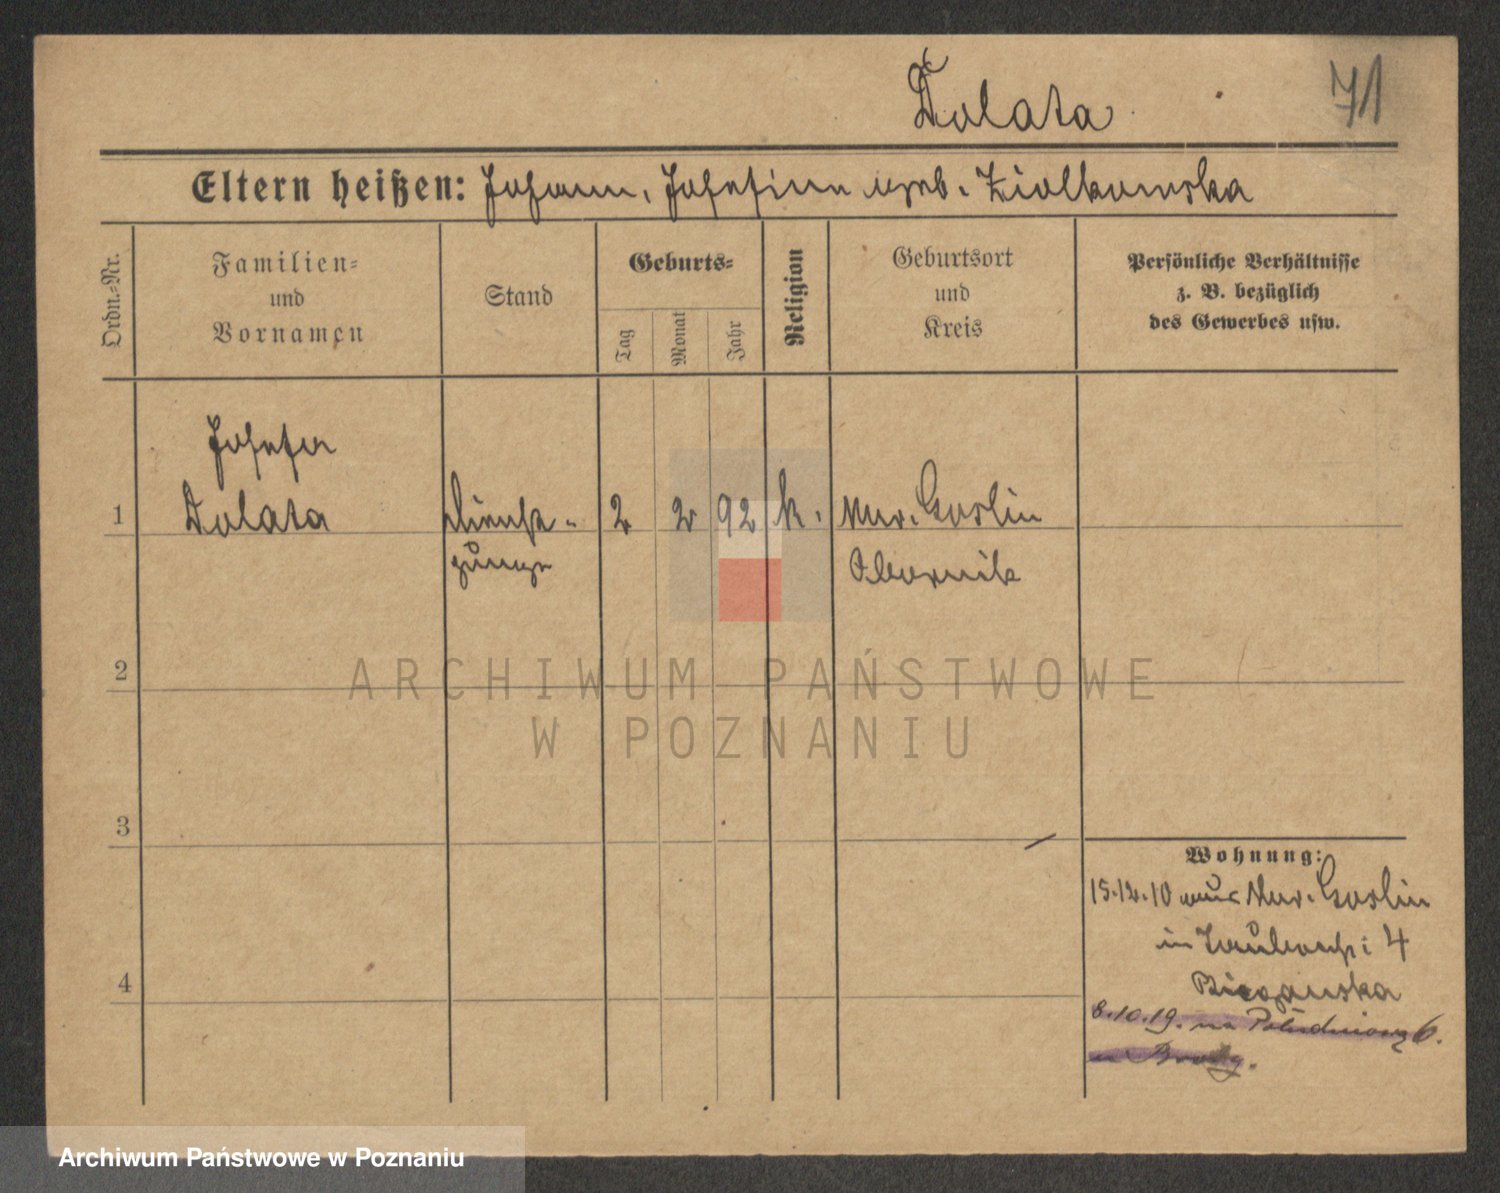 Dolata
71
Eltern heißen: Johann, Josefine geb. Ziolkowska
Ordn.-Nr.
Familien-
und
Vornamen
Stand
Geburts-
Tag
Monat
Jahr
Religion
Geburtsort
und
Kreis
Persönliche Verhältnisse
z. B. bezüglich
des Gewerbes usw.
Josefa
1 Dolata Dienst- 2 2 92 k. Mur. Goslin
Obornik
2
ARCHIWUM PAŃSTWOWE
W POZNANIU
3
Wohnung:
15.12.10 aus Mur. Goslin
in 4
4
8.10.19. na Południową 6.
u
Archiwum Państwowe w Poznaniu